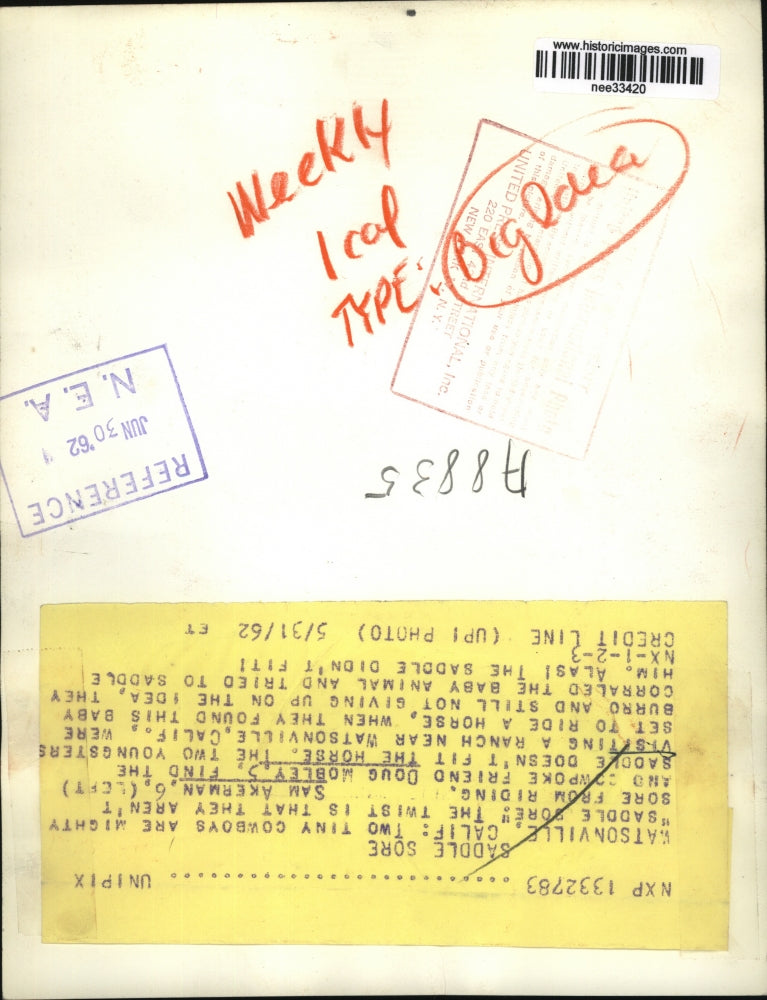 www.historicimages.com
nee33420
Weekly
1 col
TYPE:
Big Idea
UNITED PRESS INTERNATIONAL, Inc.
220 EAST 42nd STREET
NEW YORK 17, N.Y.
REFERENCE
JUN 30 '62
N. E. A.
A8835
NXP 1332783 .............................. UNIPIX
SADDLE SORE
WATSONVILLE, CALIF: TWO TINY COWBOYS ARE MIGHTY
"SADDLE SORE". THE TWIST IS THAT THEY AREN'T
SORE FROM RIDING. SAM AKERMAN, 6, (LEFT)
AND COWPOKE FRIEND DOUG MOBLEY, 5, FIND THE
SADDLE DOESN'T FIT THE HORSE. THE TWO YOUNGSTERS
VISITING A RANCH NEAR WATSONVILLE, CALIF., WERE
SET TO RIDE A HORSE, WHEN THEY FOUND THIS BABY
BURRO AND STILL NOT GIVING UP ON THE IDEA, THEY
CORRALED THE BABY ANIMAL AND TRIED TO SADDLE
HIM. ALAS! THE SADDLE DIDN'T FIT!
NX-1-2-3
CREDIT LINE (UPI PHOTO) 5/31/62 ET